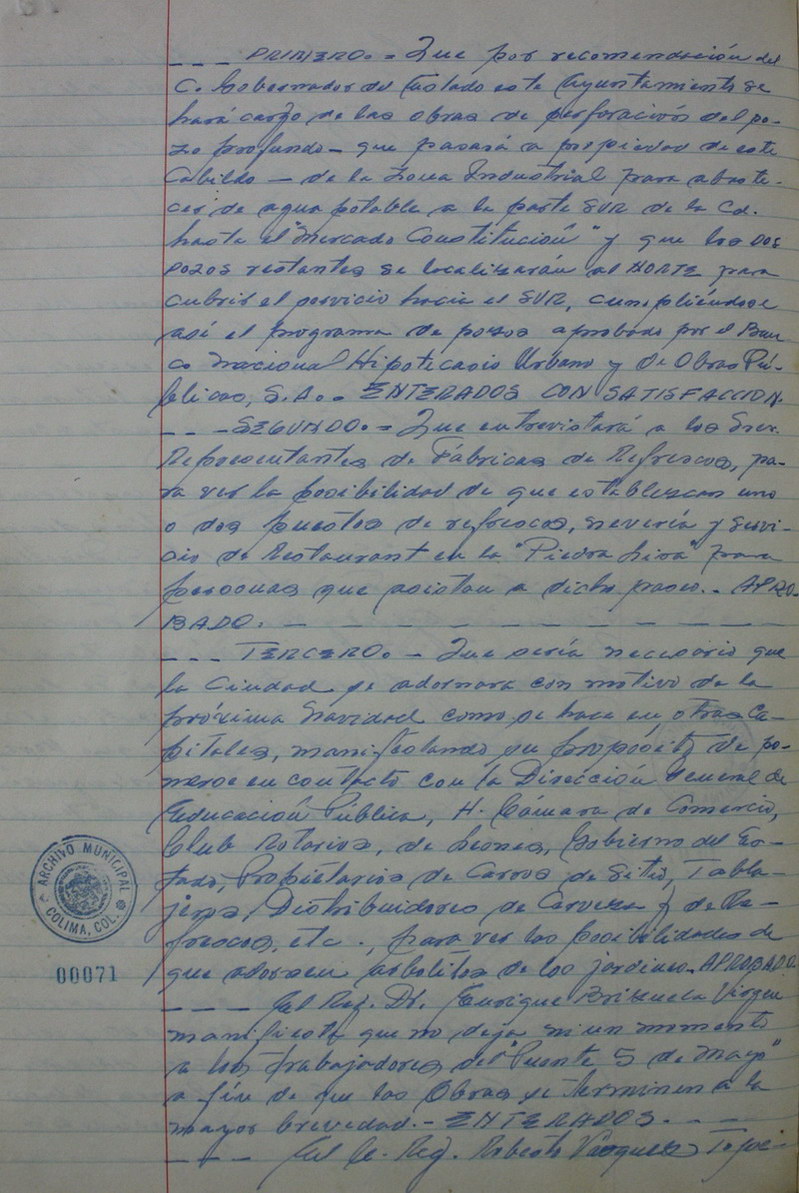 - - - PRIMERO. = Que por recomendación del
C. Gobernador del Estado este Ayuntamiento se
hará cargo de las obras de perforación del po-
zo profundo - que pasará a propiedad de este
Cabildo - de la Zona Industrial para abaste-
cer de agua potable a la parte SUR de la Cd.
hasta el "Mercado Constitución" y que los DOS
POZOS restantes se localizarán al NORTE para
cubrir el servicio hacia el SUR, cumpliéndose
así el programa de pozos aprobado por el Ban-
co Nacional Hipotecario Urbano y de Obras Pú-
blicas, S.A.. - ENTERADOS CON SATISFACCION.
- - - SEGUNDO. = Que entrevistará a los Sres.
Representantes de Fábricas de Refrescos, pa-
ra ver la posibilidad de que establezcan uno
o dos puestos de refrescos, nevería y servi-
cio de Restaurant en la "Piedra Lisa" para
personas que asistan a dicho paseo. - APRO-
BADO. - - - - - - - -
- - - TERCERO. - Que sería necesario que
la Ciudad se adornara con motivo de la
próxima Navidad como se hace en otras Ca-
pitales, manifestando su propósito de po-
nerse en contacto con la Dirección General de
Educación Pública, H. Cámara de Comercio,
Club Rotarios, de Leones, Gobierno del Es-
tado, Propietarios de Carros de Sitio, Tabla-
jeros, Distribuidores de Cerveza y de Re-
frescos, etc., para ver las posibilidades de
que adornen arbolitos de los jardines. APROBADO.
- - - El Reg. Dr. Enrique Brizuela Virgen
manifiesta que no deja ni un momento
a los trabajadores del "Puente 5 de Mayo"
a fin de que las Obras se terminen a la
mayor brevedad. - ENTERADOS. - - -
- - - El C. Reg. Roberto Vázquez
ARCHIVO MUNICIPAL
COLIMA, COL.
00071